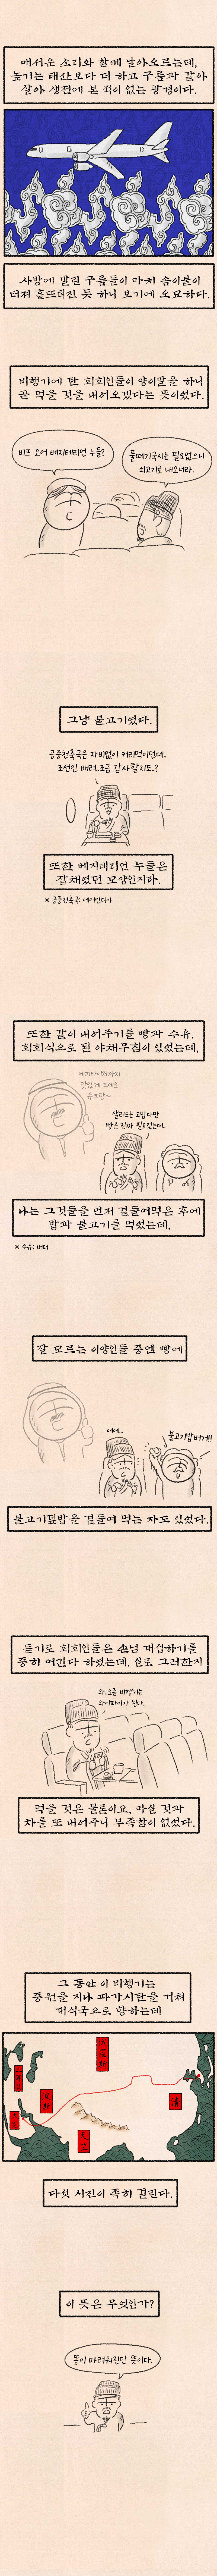 매서운 소리와 함께 날아오르는데,
높기는 태산보다 더 하고 구름과 같아
살아 생전에 본 적이 없는 광경이다.
사방에 깔린 구름들이 마치 솜이불이
터져 흩뜨려진 듯 하니 보기에 오묘하다.
비행기에 탄 회회인들이 양이말을 하니
곧 먹을 것을 내어오겠다는 뜻이렸다.
비프 오어 베지테리언 누들?
풀떼기국시는 필요없으니
쇠고기로 내오너라.
그냥 불고기였다.
공중천축국은 자비없이 커리행이던데..
조선인 배려..조금 감사할지도..?
또한 베지테리언 누들은
잡채였던 모양인지라.
※ 공중천축국: 에어인디아
또한 같이 내어주기를 빵과 수유,
회회식으로 된 야채무침이 있었는데,
에피타이저까지
맛있게 드세요
유브란~
샐러드는 고맙다만
빵은 진짜 필요없는데..
나는 그것들을 먼저 곁들여먹은 후에
밥과 불고기를 먹었는데,
※ 수유: 버터
잘 모르는 이양인들 중엔 빵에
에에..
불고기밥버거!!
불고기덮밥을 곁들여 먹는 자도 있었다.
듣기로 회회인들은 손님 대접하기를
중히 여긴다 하였는데, 실로 그러한지
와..요즘 비행기는
와이파이가 된다..
먹을 것은 물론이요, 마실 것과
차를 또 내어주니 부족함이 없었다.
그 동안 이 비행기는
중원을 지나 파가시탄을 거쳐
대식국으로 향하는데
清
다섯 시진이 족히 걸린다.
이 뜻은 무엇인가?
똥이 마려워진단 뜻이다.